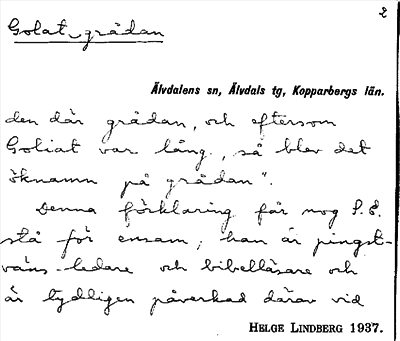 2
Golat-grådan
Älvdalens sn, Älvdals tg, Kopparbergs län.
den där grådan, och eftersom
Goliat var lång, så blev det
öknamn på grådan".
Denna förklaring får nog P.E.
stå för ensam; han är pingst-
väns-ledare och bibelläsare och
är tydligen påverkad därav vid
HELGE LINDBERG 1937.